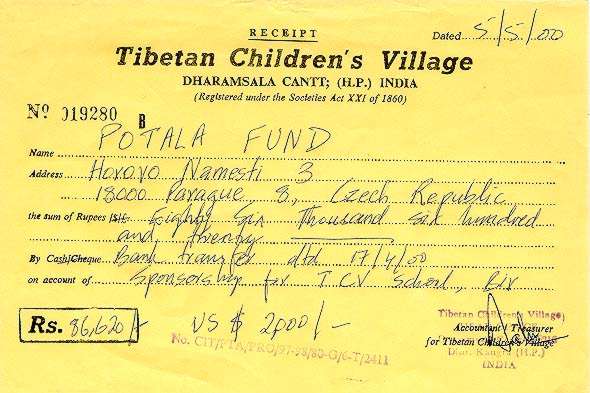 RECEIPT
Dated 5/5/00
Tibetan Children's Village
DHARAMSALA CANTT; (H.P.) INDIA
(Registered under the Societies Act XXI of 1860)
No. 019280 B
Name POTALA FUND
Address Hovovo Namesti 3
18000 Parague, 8, Czech Republic
the sum of Rupees Eighty Six Thousand six hundred
and twenty
By Cash/Cheque Bank transfer dtd 17/4/00
on account of Sponsorship for TCV School, Bir
Rs. 86,620/- US $ 2000/-
No. CIT/PTA/PRO/97-98/80-G/6-T/2411
Tibetan Children's Village)
Accountant / Treasurer
for Tibetan Children's Village
Distt. Kangra (H.P.)
INDIA